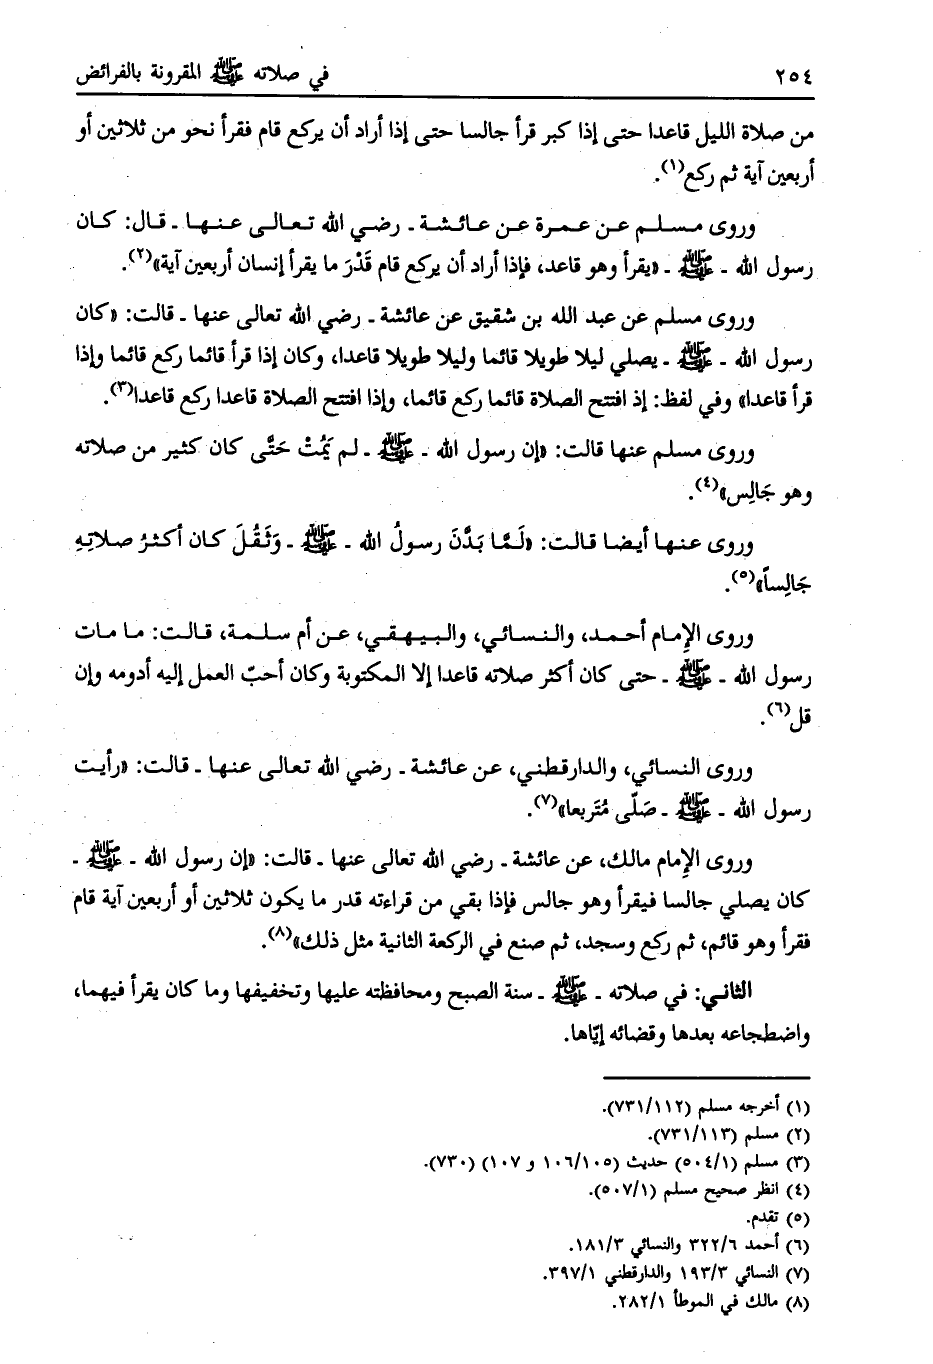 ٢٥٤ في صلاته ﷺ المقرونة بالفرائض
من صلاة الليل قاعدا حتى إذا كبر قرأ جالسا حتى إذا أراد أن يركع قام فقرأ نحو من ثلاثين أو
أربعين آية ثم ركع(١).
وروى مسلم عن عمرة عن عائشة ـ رضي الله تعالى عنها ـ قال: كان
رسول الله ـ ﷺ ـ «يقرأ وهو قاعد، فإذا أراد أن يركع قام قَدْرَ ما يقرأ إنسان أربعين آية»(٢).
وروى مسلم عن عبد الله بن شقيق عن عائشة ـ رضي الله تعالى عنها ـ قالت: «كان
رسول الله ـ ﷺ ـ يصلي ليلا طويلا قائما وليلا طويلا قاعدا، وكان إذا قرأ قائما ركع قائما وإذا
قرأ قاعدا» وفي لفظ: إذ افتتح الصلاة قائما ركع قائما، وإذا افتتح الصلاة قاعدا ركع قاعدا(٣).
وروى مسلم عنها قالت: «إن رسول الله ـ ﷺ ـ لم يَمُتْ حَتَّى كان كثير من صلاته
وهو جَالِس»(٤).
وروى عنها أيضا قالت: «لَمَّا بَدَّنَ رسولُ الله ـ ﷺ ـ وَثَقُلَ كان أكثرُ صلاتِهِ
جَالِساً»(٥).
وروى الإمام أحمد، والنسائي، والبيهقي، عن أم سلمة، قالت: ما مات
رسول الله ـ ﷺ ـ حتى كان أكثر صلاته قاعدا إلا المكتوبة وكان أحبّ العمل إليه أدومه وإن
قل(٦).
وروى النسائي، والدارقطني، عن عائشة ـ رضي الله تعالى عنها ـ قالت: «رأيت
رسول الله ـ ﷺ ـ صَلّى مُتَربعا»(٧).
وروى الإمام مالك، عن عائشة ـ رضي الله تعالى عنها ـ قالت: «إن رسول الله ـ ﷺ ـ
كان يصلي جالسا فيقرأ وهو جالس فإذا بقي من قراءته قدر ما يكون ثلاثين أو أربعين آية قام
فقرأ وهو قائم، ثم ركع وسجد، ثم صنع في الركعة الثانية مثل ذلك»(٨).
الثاني: في صلاته ـ ﷺ ـ سنة الصبح ومحافظته عليها وتخفيفها وما كان يقرأ فيهما،
واضطجاعه بعدها وقضائه إيّاها.
(١) أخرجه مسلم (٧٣١/١١٢).
(٢) مسلم (٧٣١/١١٣).
(٣) مسلم (٥٠٤/١) حديث (١٠٦/١٠٥ و ١٠٧) (٧٣٠).
(٤) انظر صحيح مسلم (٥٠٧/١).
(٥) تقدم.
(٦) أحمد ٣٢٢/٦ والنسائي ١٨١/٣.
(٧) النسائي ١٩٣/٣ والدارقطني ٣٩٧/١.
(٨) مالك في الموطأ ٢٨٢/١.